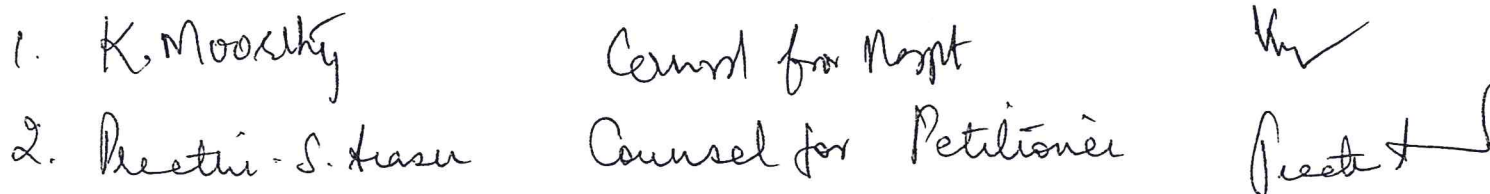 1. K. Moorthy Counsel for Respt
2. Preethi. S. Counsel for Petitioner